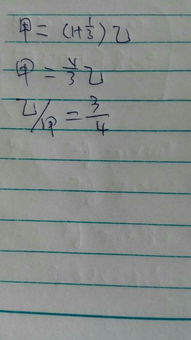 甲=(1+1/3)乙
甲=4/3乙
乙/甲=3/4